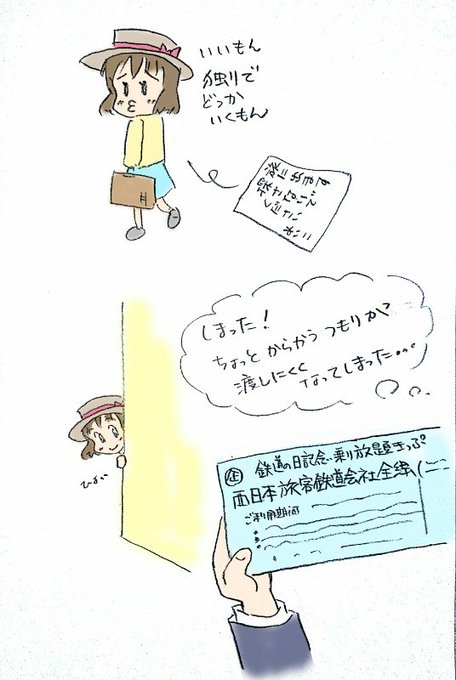 いいもん
独りで
どっか
いくもん
旅に出ます
探さないで
ください
しまった!
ちょっとからかうつもりが
渡しにくく
なってしまった…
ひょい
企 鉄道の日記念・乗り放題きっぷ
西日本旅客鉄道会社全線(
ご利用期間